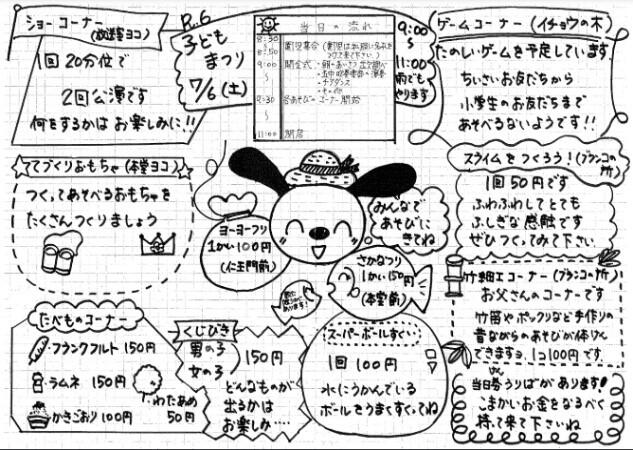 ショーコーナー
(放送室ヨコ)
1回20分位で
2回公演です
何をするかはお楽しみに!!
R.6
子ども
まつり
7/6(土)
当日の流れ
8:30
~
8:50
9:00
~
9:30
各あそびのコーナー開始
~
11:00 閉店
9:00
~
11:00
雨でも
やります
ゲームコーナー(イチョウの木)
たのしいゲームを予定しています
ちいさいお友だちから
小学生のお友だちまで
あそべるないようです!!
てづくりおもちゃ(本堂ヨコ)
つくってあそべるおもちゃを
たくさんつくりましょう
ヨーヨーツリ
1かい100円
(仁王門前)
みんなで
あそびに
きてね
さかなつり
1かい150円
(本堂前)
スライムをつくろう!(ブランコの所)
1回50円です
ふわふわしてとても
ふしぎな感触です
ぜひつくってみて下さい
竹細工コーナー(ブランコの所)
お父さんのコーナーです
竹笛やポックリなど手作りの
昔ながらのあそびが体けん
できますョ、1コ100円です.
たべものコーナー
フランクフルト 150円
ラムネ 150円
わたあめ
50円
かきごおり 100円
くじびき
男の子
女の子
150円
どんなものが
出るかは
お楽しみ・・・・
スーパーボールすくい
1回 100円
水にうかんでいる
ボールをうまくすくってね
当日券うりばがあります!
こまかいお金をなるべく
持って来て下さいね